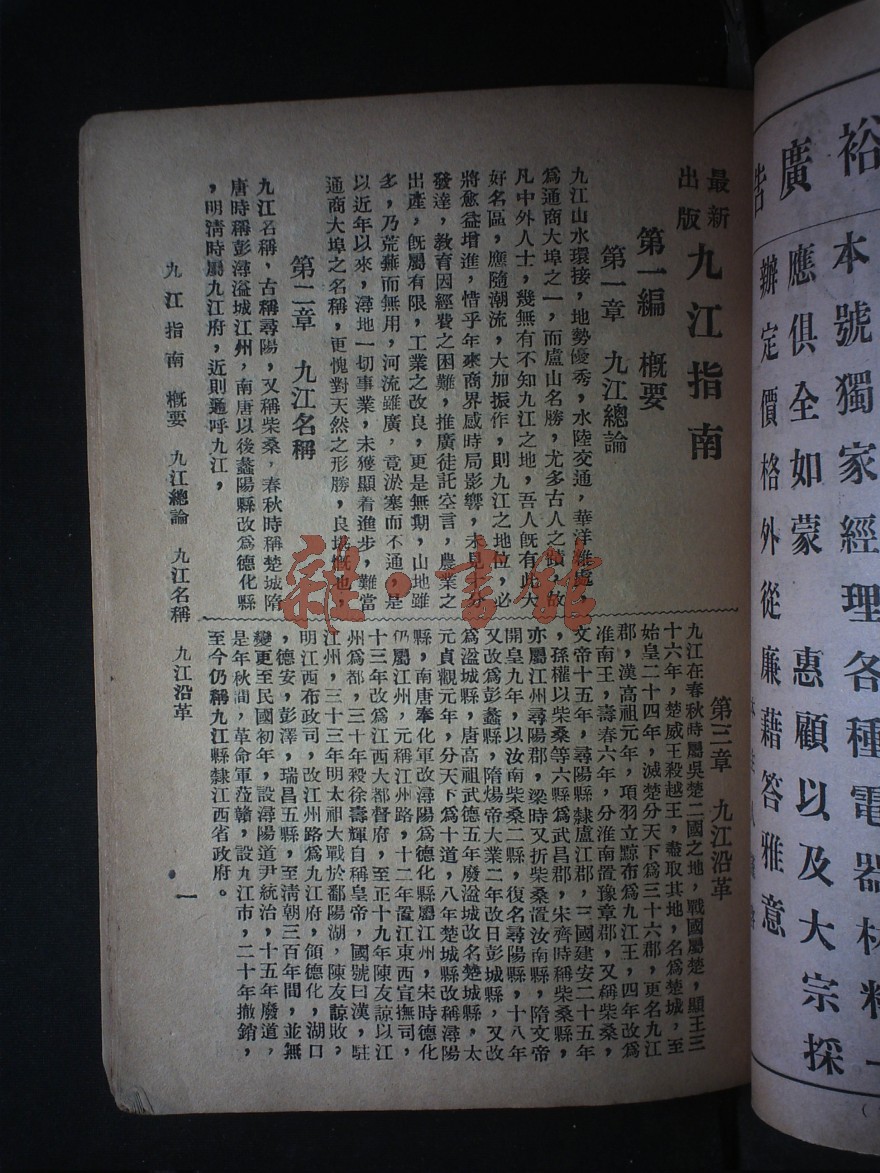 最新出版 九江指南
第一編 概要
第一章 九江總論
九江山水環接，地勢優秀，水陸交通，華洋雜處
爲通商大埠之一，而廬山名勝，尤多古人之蹟，故
凡中外人士，幾無有不知九江之地，吾人旣有此大
好名區，應隨潮流，大加振作，則九江之地位，必
將愈益增進，惜乎年來商界感時局影響，未見十分
發達，教育因經費之困難，推廣徒託空言，農業之
出產，旣屬有限，工業之改良，更是無期，山地雖
多，乃荒蕪而無用，河流雖廣，竟淤塞而不通，是
以近年以來，潯地一切事業，未獲顯着進步，難當
通商大埠之名稱，更愧對天然之形勝，良堪慨也，
第二章 九江名稱
九江名稱，古稱尋陽，又稱柴桑，春秋時稱楚城隋
唐時稱彭潯湓城江州，南唐以後蠡陽縣改爲德化縣
，明淸時屬九江府，近則通呼九江，
第三章 九江沿革
九江在春秋時屬吳楚二國之地，戰國屬楚，顯王三
十六年，楚威王殺越王，盡取其地，名爲楚城，至
始皇二十四年，滅楚分天下爲三十六郡，更名九江
郡，漢高祖元年，項羽立黥布爲九江王，四年改爲
淮南王，壽春六年，分淮南置豫章郡，又稱柴桑，
文帝十五年，尋陽縣隸廬江郡，三國建安二十五年
，孫權以柴桑等六縣爲武昌郡，宋齊時稱柴桑縣，
亦屬江州尋陽郡，梁時又折柴桑置汝南縣，隋文帝
開皇九年，以汝南柴桑二縣，復名尋陽縣，十八年
又改爲彭蠡縣，隋煬帝大業二年改日彭城縣，又改
爲湓城縣，唐高祖武德五年廢湓城改名楚城縣，太
元貞觀元年，分天下爲十道，八年楚城縣改稱潯陽
縣，南唐奉化軍改潯陽爲德化縣屬江州，宋時德化
仍屬江州，元稱江州路，十二年置江東西宣撫司，
十三年改爲江西大都督府，至正十九年陳友諒以江
州爲都，三十年殺徐壽輝自稱皇帝，國號曰漢，駐
江州，三十三年明太祖大戰於鄱陽湖，陳友諒敗，
明江西布政司，改江州路爲九江府，領德化，湖口
，德安，彭澤，瑞昌五縣，至淸朝三百年間，並無
變更至民國初年，設潯陽道尹統治，十五年廢道，
是年秋間，革命軍蒞贛，設九江市，二十年撤銷，
至今仍稱九江縣隸江西省政府。
九江指南 概要 九江總論 九江名稱 九江沿革
一
裕
廣告
本號獨家經理各種電器材料
應俱全如蒙 惠顧以及大宗採
辦定價格外從廉藉答雅意
雜·書館